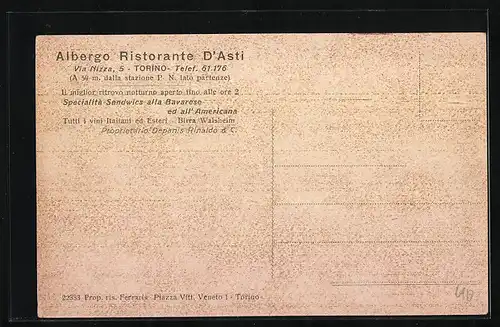 Albergo Ristorante D'Asti
Via Nizza, 5 - TORINO - Telef. 61.176
(A 50 m. dalla stazione P. N. lato partenze)
Il miglior ritrovo notturno aperto fino alle ore 2
Specialità Sendwics alla Bavarese
ed all'Americana
Tutti i vini Italiani ed Esteri - Birra Walsheim
Proprietario Depanis Rinaldo & C.
22333 Prop. ris. Ferraris Piazza Vitt. Veneto 1 - Torino